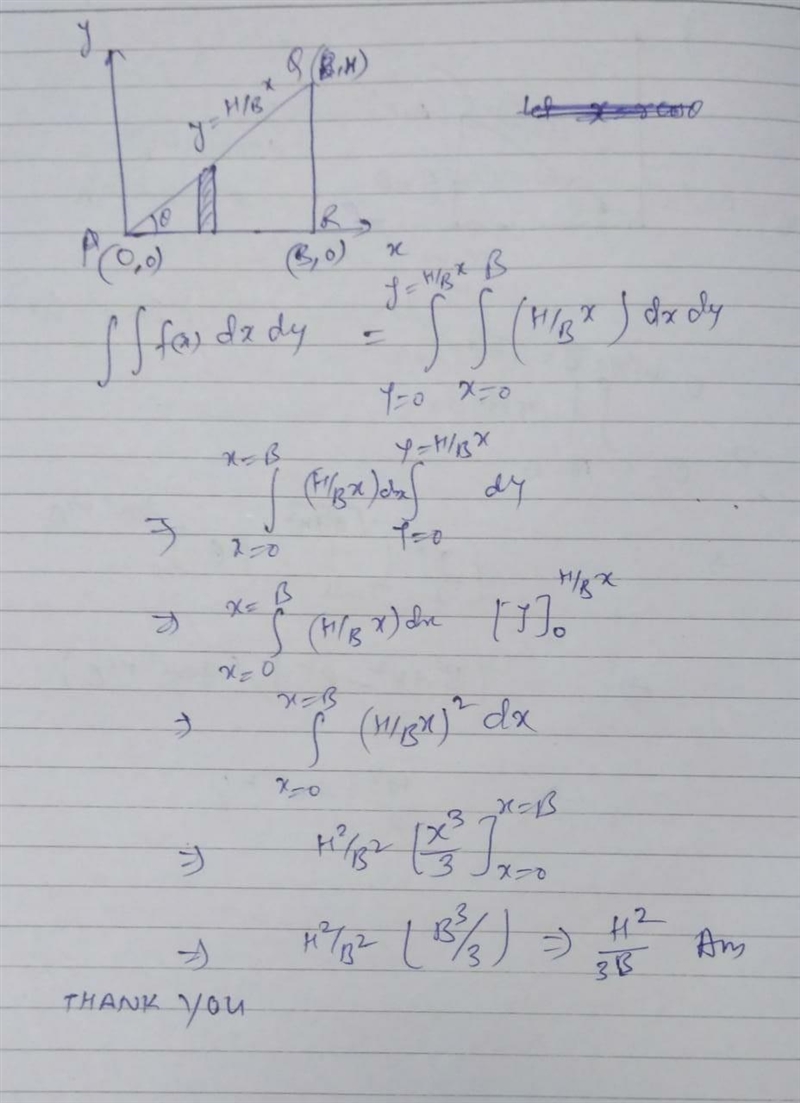 y
Q (B,H)
y = H/B x
θ
P (0,0)
R
(B,0)
x
∫∫ f(x) dx dy = ∫_{y=0}^{y=H/B x} ∫_{x=0}^{B} (H/B x) dx dy
⇒ ∫_{x=0}^{x=B} (H/B x) dx ∫_{y=0}^{y=H/B x} dy
⇒ ∫_{x=0}^{x=B} (H/B x) dx [y]_0^{H/B x}
⇒ ∫_{x=0}^{x=B} (H/B x)^2 dx
⇒ H^2/B^2 [x^3/3]_{x=0}^{x=B}
⇒ H^2/B^2 (B^3/3) ⇒ H^2/3B Ans
THANK YOU